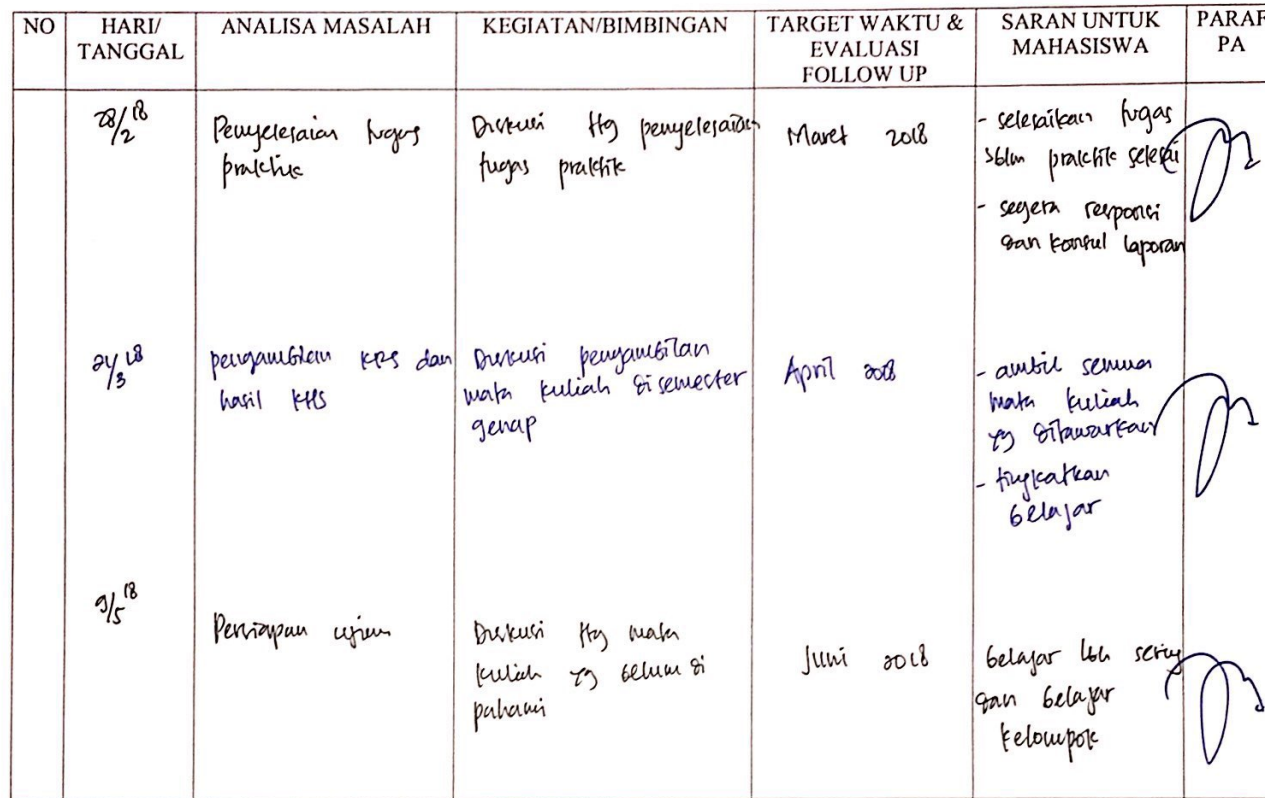 NO
HARI/
TANGGAL
ANALISA MASALAH
KEGIATAN/BIMBINGAN
TARGET WAKTU &
EVALUASI
FOLLOW UP
SARAN UNTUK
MAHASISWA
PARAF
PA
28/2 18
Penyelesaian tugas
praktik
Diskusi ttg penyelesaian
tugas praktik
Maret 2018
- selesaikan tugas
sblm praktik selesai
- segera responsi
dan konsul laporan
21/3 18
pengambilan KRS dan
hasil KHS
Diskusi pengambilan
mata kuliah disemester
genap
April 2018
- ambil semua
mata kuliah
yg ditawarkan
- tingkatkan
belajar
9/5 18
Persiapan ujian
Diskusi ttg mata
kuliah yg belum di
pahami
Juni 2018
belajar lbh sering
dan belajar
kelompok